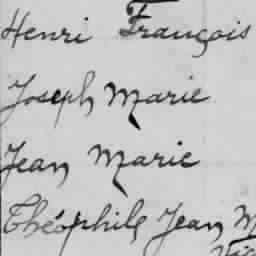 Henri François
Joseph Marie
Jean Marie
Théophile Jean M